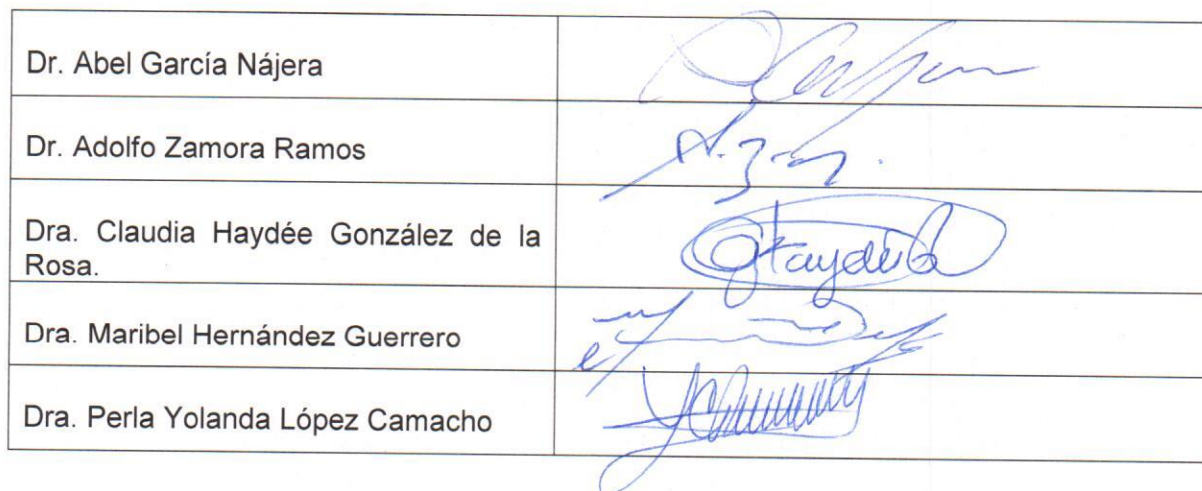 Dr. Abel García Nájera
Dr. Adolfo Zamora Ramos
Dra. Claudia Haydée González de la
Rosa.
Dra. Maribel Hernández Guerrero
Dra. Perla Yolanda López Camacho